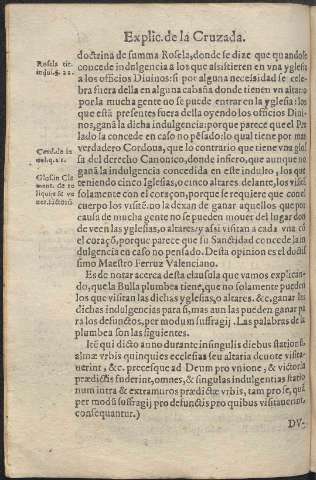 Explic. de la Cruzada.
doctrina de summa Rosela, donde se dize que quando se
Rosela tit.
indul. §. 22.
concede indulgencia a los que assistieren en vna yglesia
a los officios Diuinos: si por alguna necessidad se cele
bra fuera della en alguna cabaña donde tienen vn altar o
por la mucha gente no se puede entrar en la yglesia: los
que està presentes fuera della oyendo los officios Diui-
nos, ganã la dicha indulgencia: porque parece que el Pre
lado la concede en caso no pẽsado. lo qual tiene por mas
Cord. de in
dul. q. 21.
verdadero Cordoua, que lo contrario que tiene vna glos
sa del derecho Canonico, donde infiero, que aunque no
Glos. in Cle
ment. de re
liquijs & ve
ner. sãctorũ
ganã la indulgencia concedida en este indulto, los que
teniendo cinco Iglesias, o cinco altares delante, los visitã
solamente con el coraçon, porque se requiere que con el
cuerpo los visitẽ. no la dexan de ganar aquellos que por
causa de mucha gente no se pueden mouer del lugar don
de veen las yglesias, o altares, y assi visitan a cada vna cõ
el coraçõ, porque parece que su Sanctidad concede la in
dulgencia en caso no pensado. Desta opinion es el doctis
simo Maestro Ferruz Valenciano.
Es de notar acerca desta clausula que vamos explican-
do, que la Bulla plumbea tiene, que no solamente pueden
los que visitan las dichas yglesias, o altares. &c. ganar las
dichas indulgencias para si, mas aun las pueden ganar pa
ra los defunctos, per modum suffragij. Las palabras de la
plumbea son las siguientes.
Itẽ qui dicto anno durante in singulis diebus stationũ
almæ vrbis quinquies ecclesias seu altaria deuote visita-
uerint, &c. precesque ad Deum pro vnione, & victoria
prædictis fuderint, omnes, & singulas indulgentias statio
num intra & extra muros prædictæ vrbis, tam pro se, quã
per modũ suffragij pro defunctis pro quibus visitauerint,
consequantur.)
DV-